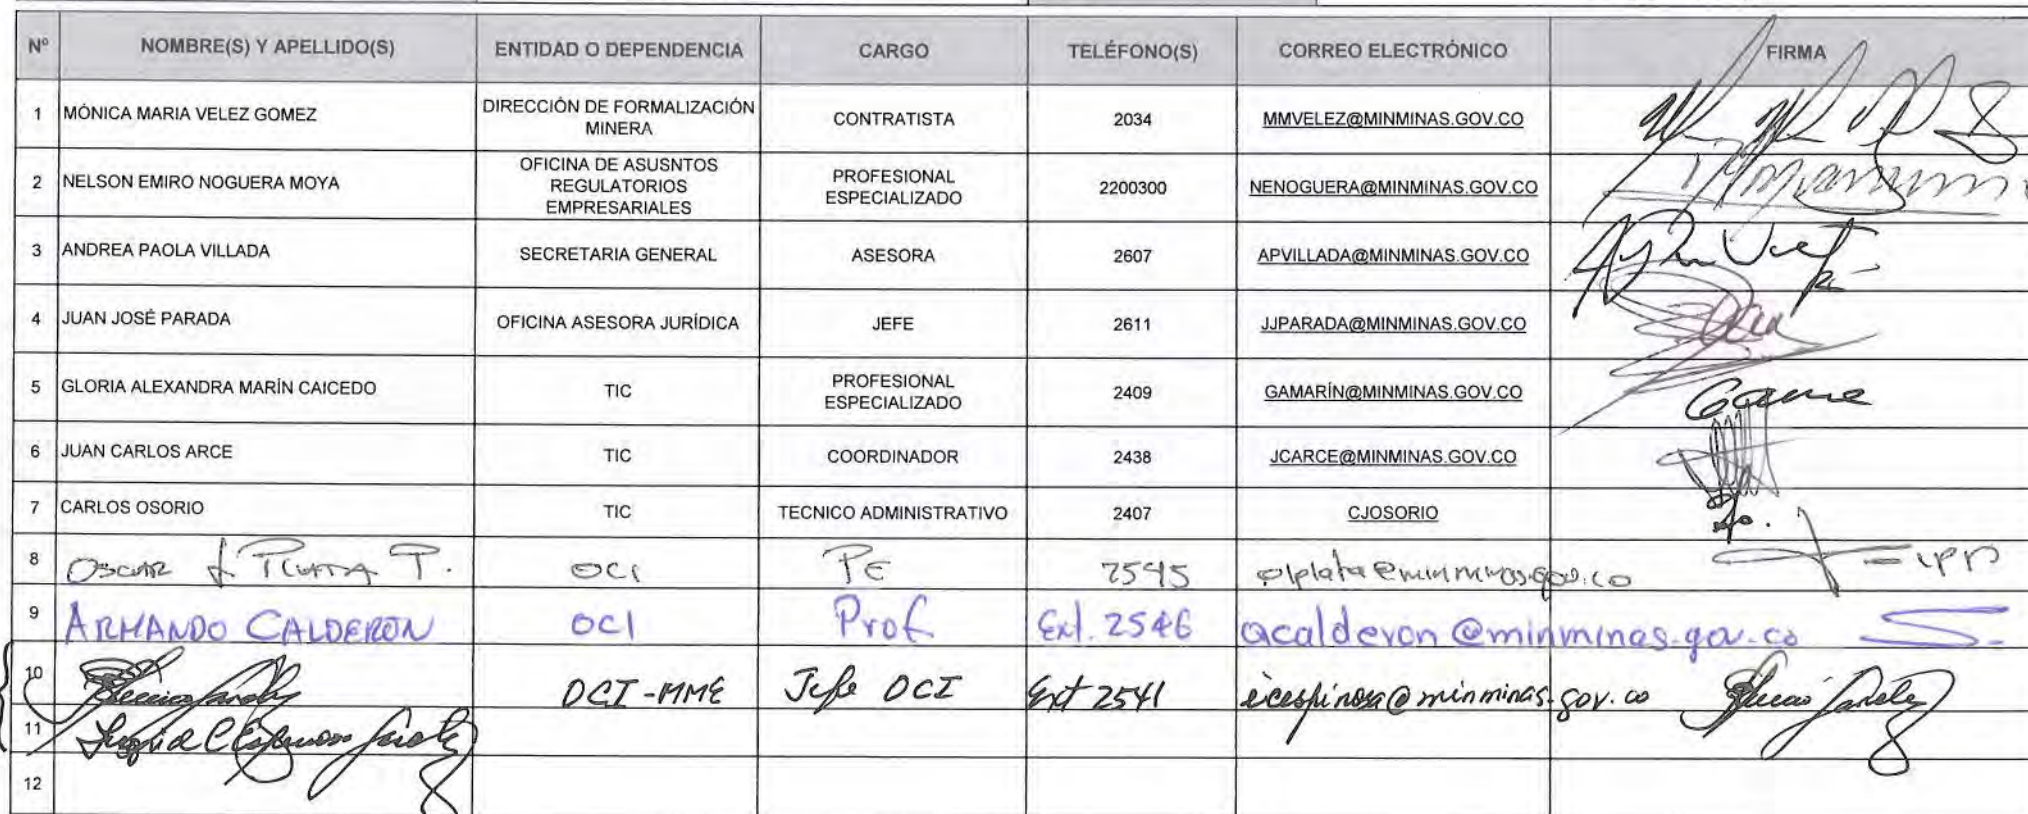 Nº NOMBRE(S) Y APELLIDO(S) ENTIDAD O DEPENDENCIA CARGO TELÉFONO(S) CORREO ELECTRÓNICO FIRMA
1 MÓNICA MARIA VELEZ GOMEZ DIRECCIÓN DE FORMALIZACIÓN MINERA CONTRATISTA 2034 MMVELEZ@MINMINAS.GOV.CO
2 NELSON EMIRO NOGUERA MOYA OFICINA DE ASUSNTOS REGULATORIOS EMPRESARIALES PROFESIONAL ESPECIALIZADO 2200300 NENOGUERA@MINMINAS.GOV.CO
3 ANDREA PAOLA VILLADA SECRETARIA GENERAL ASESORA 2607 APVILLADA@MINMINAS.GOV.CO
4 JUAN JOSÉ PARADA OFICINA ASESORA JURÍDICA JEFE 2611 JJPARADA@MINMINAS.GOV.CO
5 GLORIA ALEXANDRA MARÍN CAICEDO TIC PROFESIONAL ESPECIALIZADO 2409 GAMARÍN@MINMINAS.GOV.CO
6 JUAN CARLOS ARCE TIC COORDINADOR 2438 JCARCE@MINMINAS.GOV.CO
7 CARLOS OSORIO TIC TECNICO ADMINISTRATIVO 2407 CJOSORIO
8 OSCAR OCI PE 2545 olplata@minminas.gov.co
9 ARMANDO CALDERON OCI Prof Ext. 2546 acalderon@minminas.gov.co
10 OCI-MME Jefe OCI Ext 2541 icespinosa@minminas.gov.co
11
12